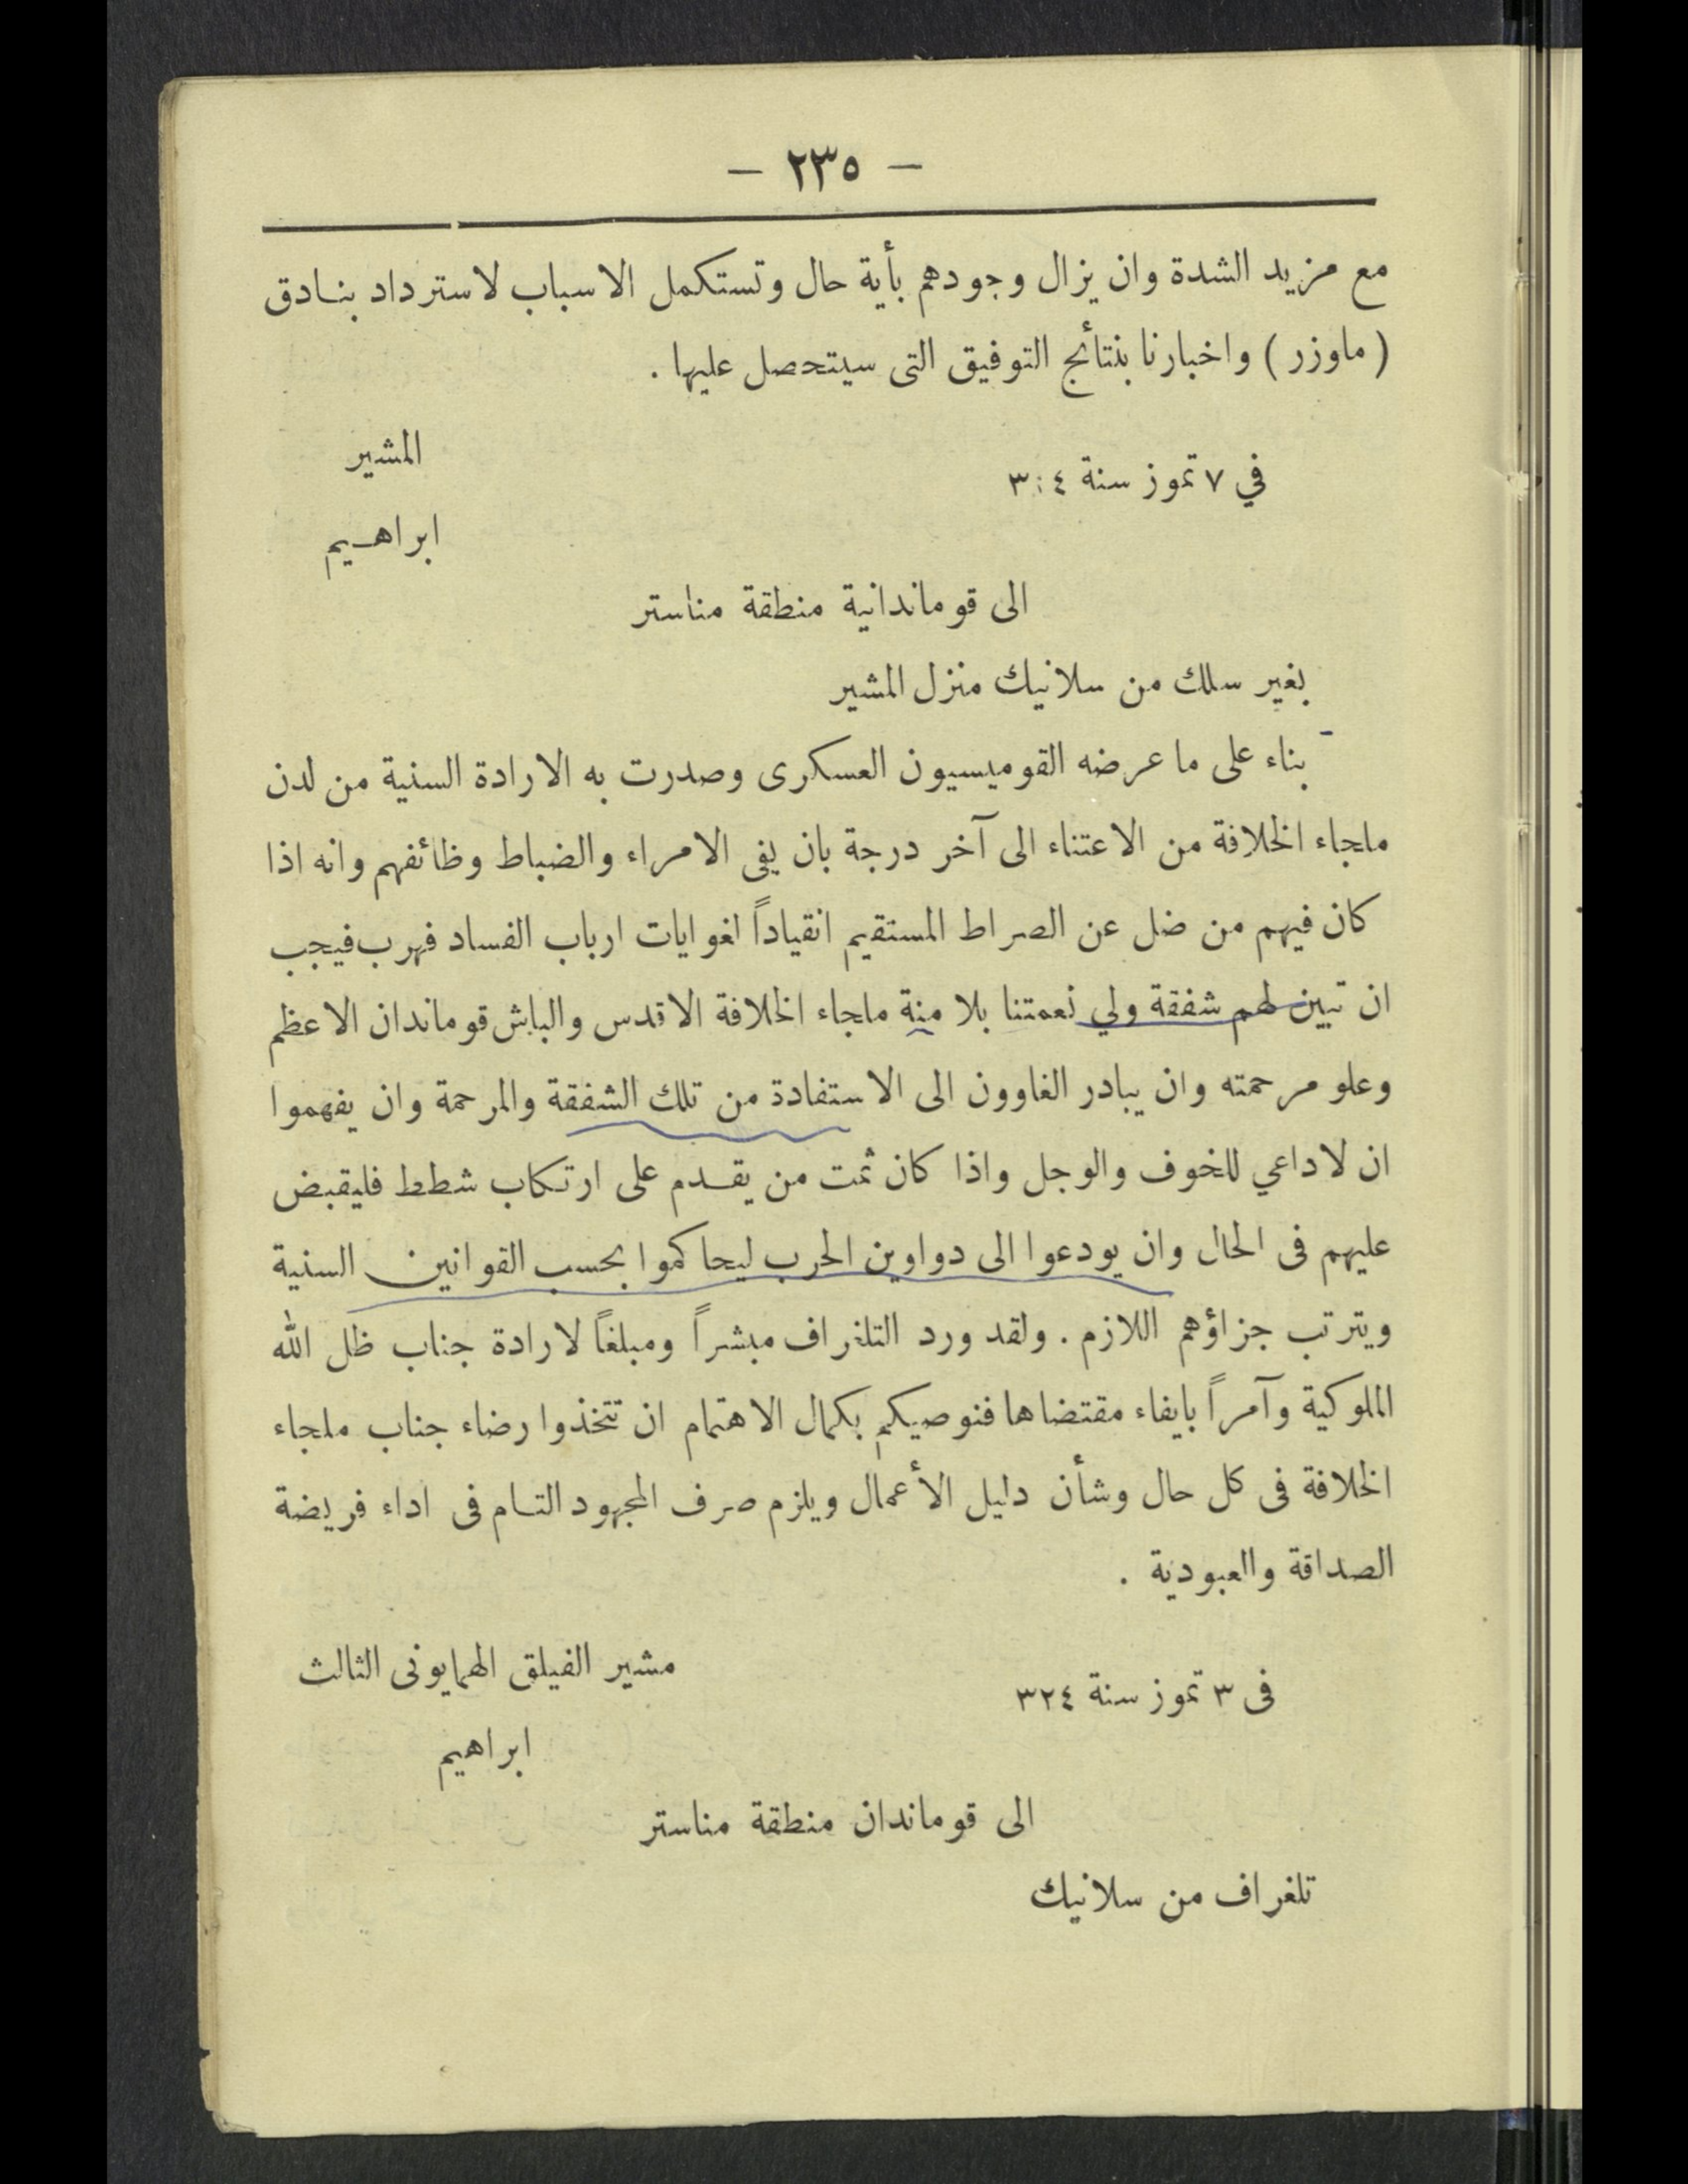 — ٢٣٥ —
مع مزيد الشدة وان يزال وجودهم بأية حال وتستكمل الاسباب لاسترداد بنادق
( ماوزر ) واخبارنا بنتائج التوفيق التى سيتحصل عليها .
المشير
في ٧ تموز سنة ٣:٤
ابراهيم
الى قوماندانية منطقة مناستر
بغير سلك من سلانيك منزل المشير
بناء على ما عرضه القوميسيون العسكرى وصدرت به الارادة السنية من لدن
ملجاء الخلافة من الاعتناء الى آخر درجة بان يفى الامراء والضباط وظائفهم وانه اذا
كان فيهم من ضل عن الصراط المستقيم انقياداً لغوايات ارباب الفساد فهرب فيجب
ان تبين لهم شفقة ولي نعمتنا بلا منة ملجاء الخلافة الاقدس والباش قوماندان الاعظم
وعلو مرحمته وان يبادر الغاوون الى الاستفادة من تلك الشفقة والمرحمة وان يفهموا
ان لاداعي للخوف والوجل واذا كان ثمت من يقدم على ارتكاب شطط فليقبض
عليهم فى الحال وان يودعوا الى دواوين الحرب ليحاكموا بحسب القوانين السنية
ويترتب جزاؤهم اللازم . ولقد ورد التلغراف مبشراً ومبلغاً لارادة جناب ظل الله
الملوكية وآمراً بايفاء مقتضاها فنوصيكم بكمال الاهتمام ان تتخذوا رضاء جناب ملجاء
الخلافة فى كل حال وشأن دليل الأعمال ويلزم صرف المجهود التام فى اداء فريضة
الصداقة والعبودية .
مشير الفيلق الهمايونى الثالث
فى ٣ تموز سنة ٣٢٤
ابراهيم
الى قوماندان منطقة مناستر
تلغراف من سلانيك